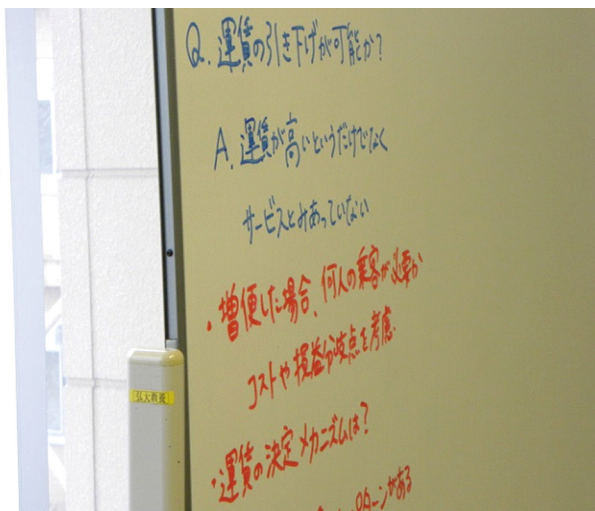 Q. 運賃の引き下げが可能か?
A. 運賃が高いというだけでなく
サービスとみあっていない
・増便した場合、何人の乗客が必要か
コストや損益分岐点を考慮
・運賃の決定メカニズムは?
パターンがある
弘大教養